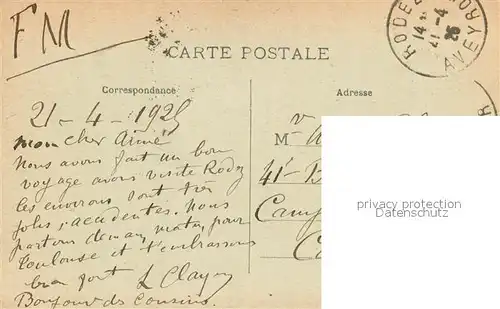 FM
RODEZ
14
21-4
25
AVEYRON
CARTE POSTALE
Correspondance
Adresse
21-4-1925
mon cher Aimé
Nous avons fait un bon
voyage avons visité Rodez
les environs sont très
jolis, accidentés. Nous
partons demain matin pour
Toulouse et t'embrassons
bien fort
Bonjour des Cousins.
M
41e
Camp
privacy protection
Datenschutz